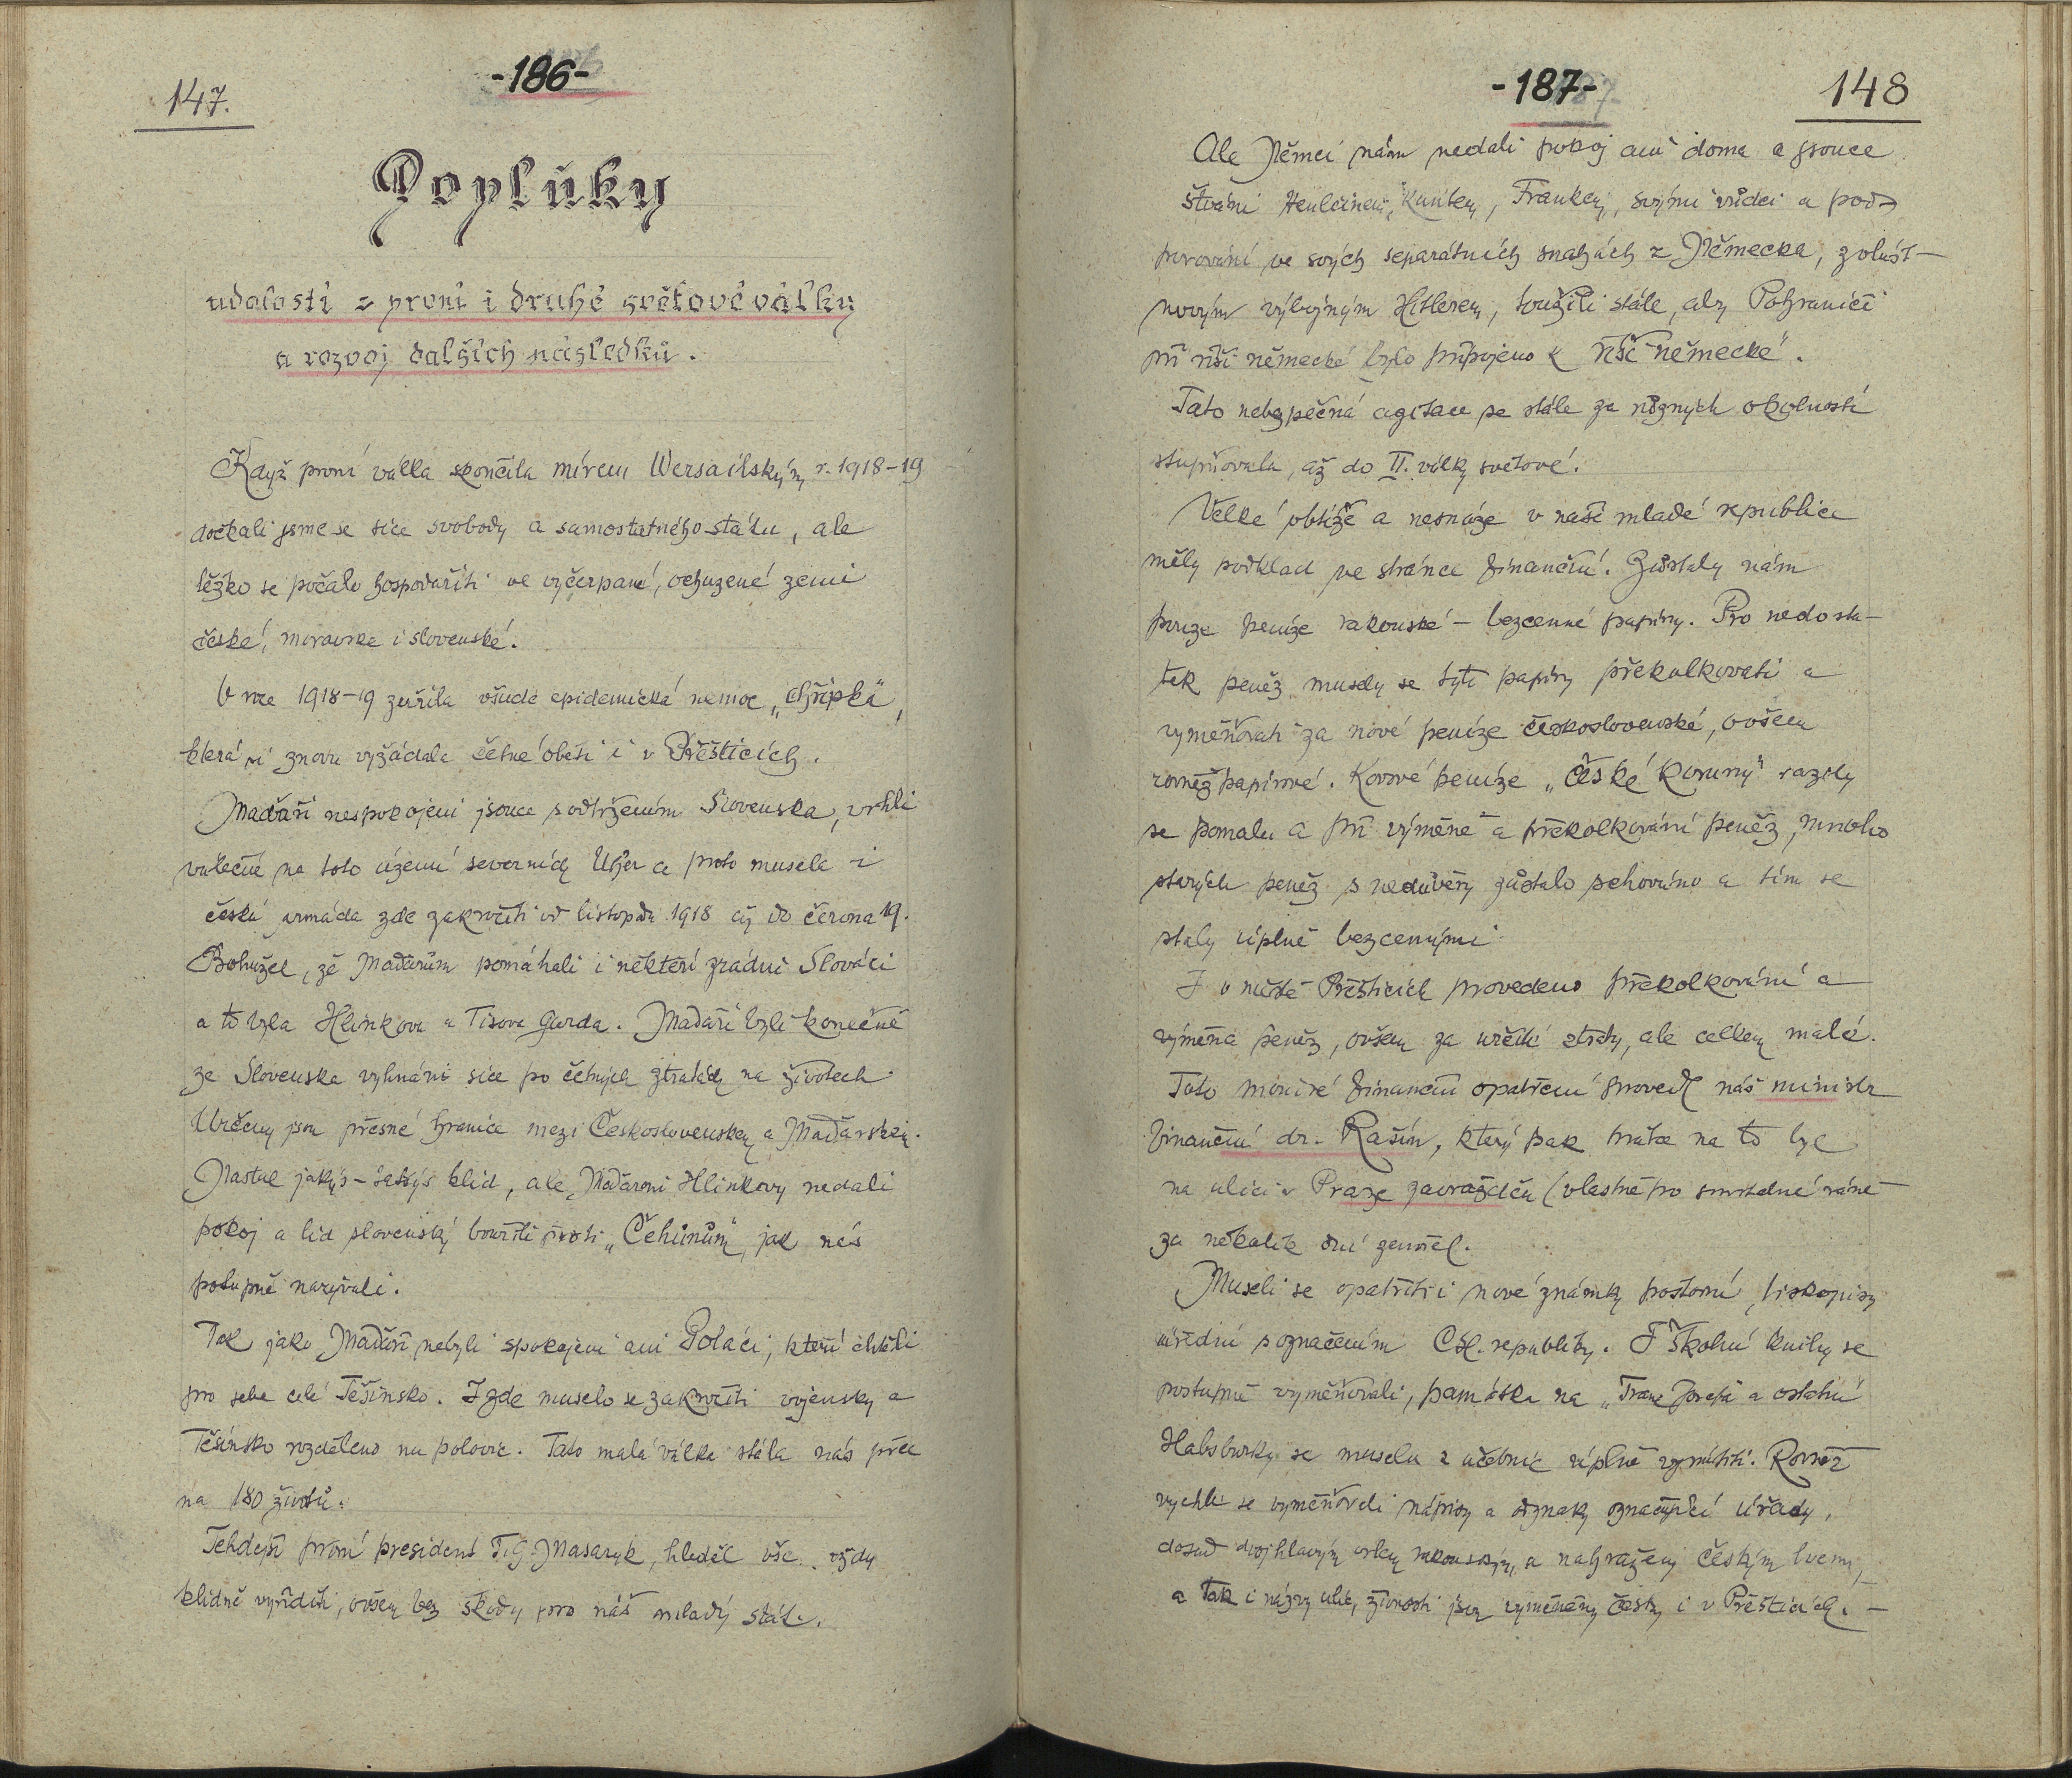 147.
-186-
Doplňky
událostí z první i druhé světové války
a rozvoj dalších následků.
Když první válka skončila mírem Wersailským r. 1918-19
dočkali jsme se sice svobody a samostatného státu, ale
těžko se počalo hospodařiti ve vyčerpané, ochuzené zemi
české, moravske i slovenské.
V roce 1918-19 zuřila všude epidemická nemoc „chřipka",
která si znovu vyžádala četné oběti i v Přešticích.
Maďaři nespokojeni jsouce s odtržením Slovenska, vrhli
válečně na toto území severních Uher a proto musela i
česká armáda zde zakročiti od listopadu 1918 až do června 19.
Bohužel, že Maďarům pomáhali i někteří zrádní Slováci
a to byla Hlinkova a Tisova Garda. Maďaři byli konečně
ze Slovenska vyhnáni sice po četných ztrátách na životech
Určeny jsou přesné hranice mezi Československem a Maďarskem.
Nastal jakýs-takýs klid, ale Maďaroni Hlinkovy nedali
pokoj a lid slovenský bouřili proti „Čehúnům", jak nás
potupně nazývali.
Tak jako Maďaři nebyli spokojeni ani Poláci, kteří chtěli
pro sebe celé Těšínsko. I zde muselo se zakročiti vojensky a
Těšínsko rozděleno na polovic. Tato malá válka stála nás přec
na 180 životů.
Tehdejší první president T.G. Masaryk, hleděl vše vždy
klidně vyříditi, ovšem bez škody pro náš mladý stát.
-187-
148
Ale Němci nám nedali pokoj ani doma a jsouce
štváni Henleinem, Kuntem, Frankem, svými vůdci a pod-
porováni ve svých separátních snahách z Německa, zvlášt-
novým výbojným Hitlerem, toužili stále, aby Pohraničí
při říši německé bylo připojeno k říši německé.
Tato nebezpečná agitace se stále za různých okolností
stupňovala, až do II. války světové.
Velké obtíže a nesnáze v naší mladé republice
měly podklad ve stránce finanční. Zůstaly nám
pouze peníze rakouské - bezcenné papíry. Pro nedosta-
tek peněz musely se tyto papíry překolkovati a
vyměňovati za nové peníze československé, ovšem
rovněž papírové. Kovové peníze „České koruny" razily
se pomalu a při výměně a překolkování peněz, mnoho
starých peněz s nedůvěry zůstalo schováno a tím se
staly úplně bezcennými
I v městě Přešticích provedeno překolkování a
výměna peněz, ovšem za určité ztráty, ale celkem malé.
Toto finanční opatření provedl náš ministr
finanční dr. Rašín, který pak na to byl
na ulici v Praze zavražděn (vlastně po smrtelné ráně
za několik dní zemřel.
Museli se opatřiti i nové známky poštovní, tiskopisy
úřední s označením Čsl. republiky. I školní knihy se
postupně vyměňovali, památka na „Franz Josefa" a ostatní
Habsburky se musela z učebnic úplně vymítiti. Rovněž
rychle se vyměňovali nápisy a odznaky označující úřady,
dosud dvojhlavým orlem rakouským, a nahraženy českým lvem,
a tak i názvy ulic, živností jsou vyměněny česky i v Přešticích. -